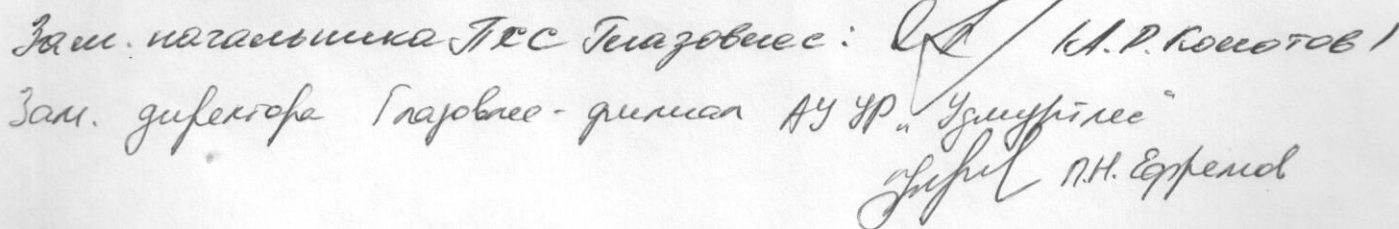 Зам. начальника ПХС Глазовлес: / И.Р. Конотов /
Зам. директора Глазовлес - филиал АУ УР „Удмуртлес"
П.Н. Ефремов